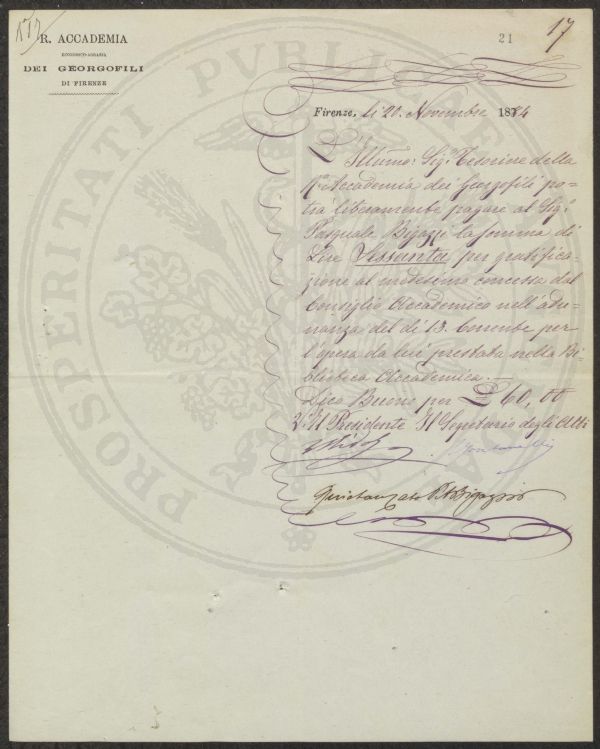 177
R. ACCADEMIA
ECONOMICO-AGRARIA
DEI GEORGOFILI
DI FIRENZE
21
17
Firenze, li 20. Novembre 1874
L'Illumo: Sig.r Tesoriere della
R.a Accademia dei Georgofili po-
trà liberamente pagare al Sig.r
Pasquale Bigazzi la somma di
Lire Sessanta per gratifica-
zione al medesimo concessa dal
Consiglio Accademico nell'adu-
nanza del dì 13. Corrente per
l'opera da lui prestata nella Bi-
blioteca Accademica.—
Dico Buono per £ 60,00
V.o Il Presidente Il Segretario degli Atti
Quietanzato P. Bigazzi
PROSPERITATI PVBLICAE